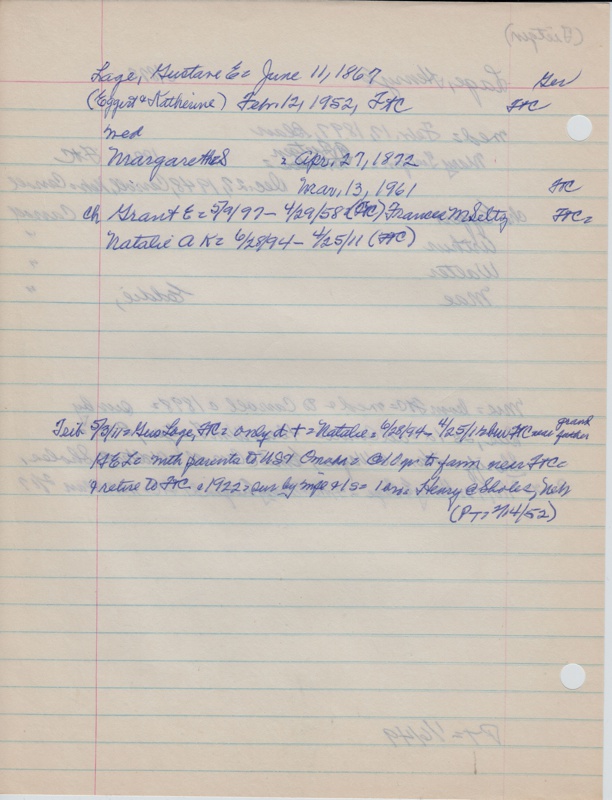 Lage, Gustave E = June 11, 1867 Ger
(Eggert & Katherine) Feb. 12, 1952, FtC FtC
med
Margarethe S = Apr. 27, 1872
Mar. 13, 1961 FtC
ch Grant E = 5/9/97 - 4/29/58 (FtC) Frances M Seltz FtC =
Natalie A K = 6/28/94 - 4/25/11 (FtC)
Trib 5/3/11 = Gus Lage, FtC = only d + = Natalie = 6/28/94 - 4/25/11 = bur FtC near grand
with parents to USA Omaha = @ 10 yr = to farm near FtC =
& retire to FtC = 1922 = sur by 1 s = 1 Henry @ Sholes, Neb
(PT = 2/14/52)